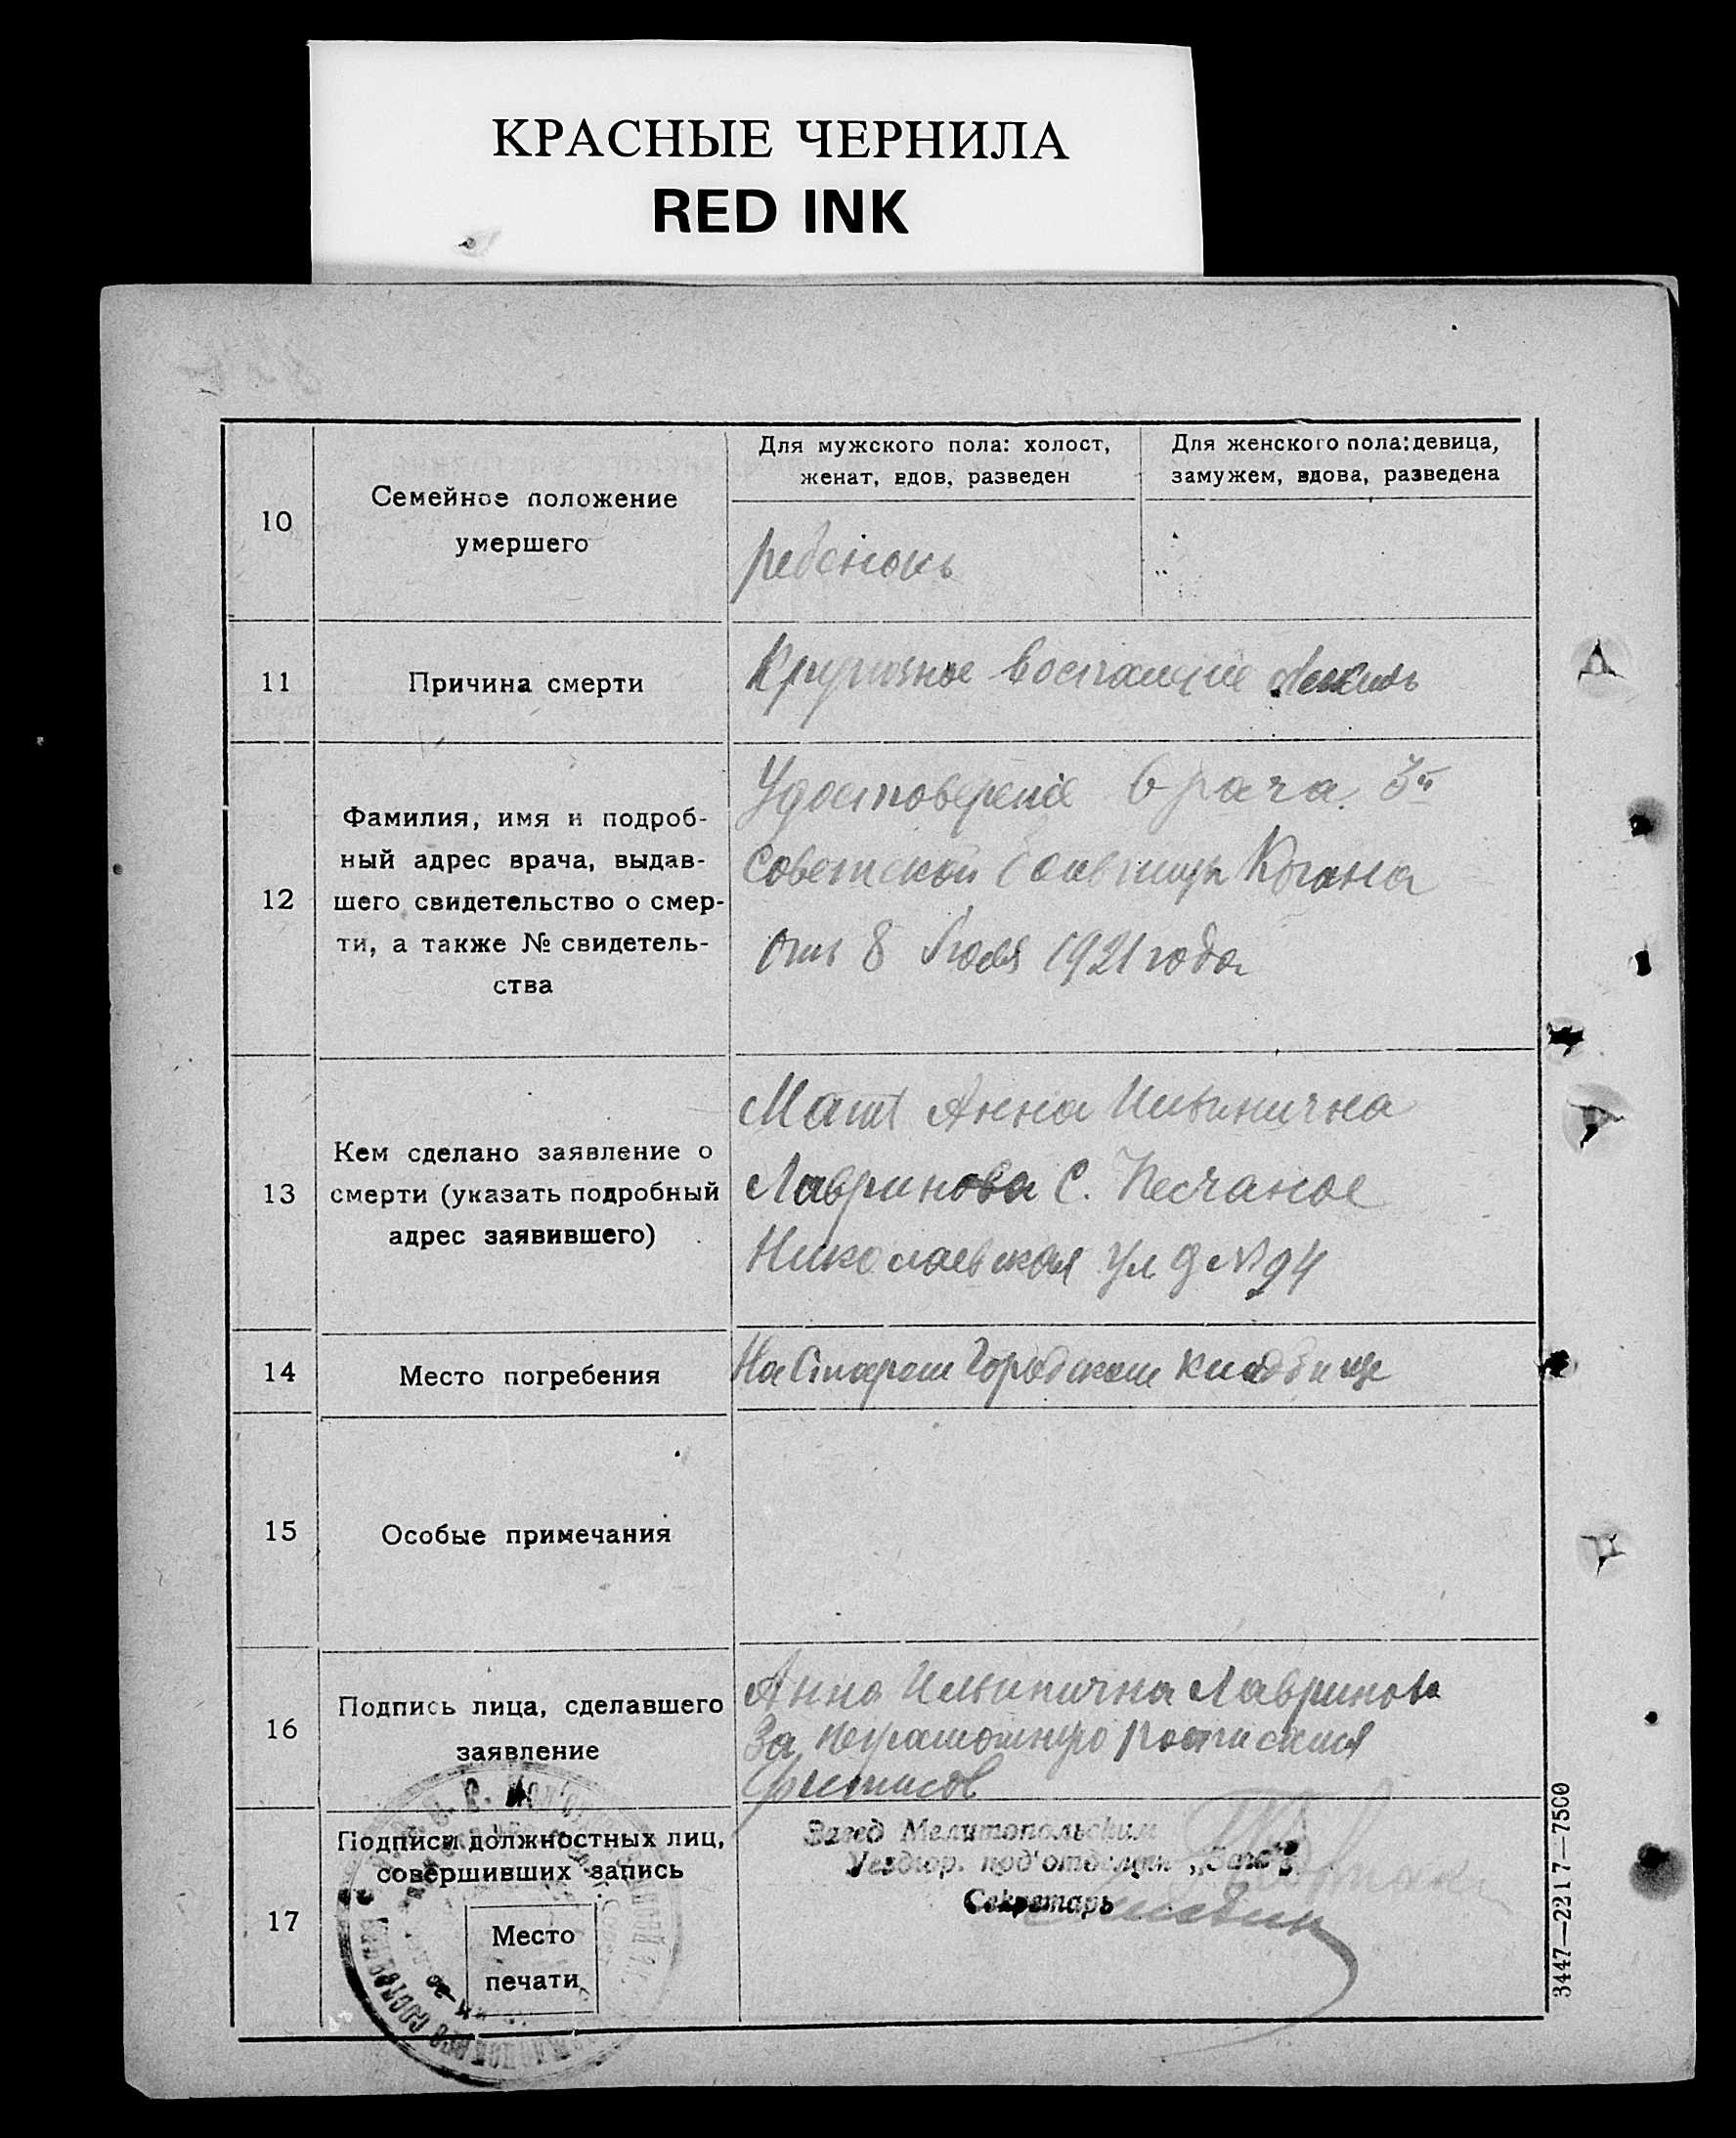 КРАСНЫЕ ЧЕРНИЛА
RED INK
10
Семейное положение
умершего
Для мужского пола: холост,
женат, вдов, разведен
Для женского пола: девица,
замужем, вдова, разведена
ребенокъ
11
Причина смерти
Крупозное воспаление легкихъ
12
Фамилия, имя и подроб-
ный адрес врача, выдав-
шего свидетельство о смер-
ти, а также № свидетель-
ства
Удостоверение врача 3й
Советской Больницы Когана
отъ 8 Июля 1921 года
13
Кем сделано заявление о
смерти (указать подробный
адрес заявившего)
Мать Анна Ильинична
Лавринова С. Песчаное
Николаевская ул д № 94
14
Место погребения
На Старом Городском кладбище
15
Особые примечания
16
Подпись лица, сделавшего
заявление
Анна Ильинична Лавринова
За неграмотную
17
Подписи должностных лиц,
совершивших запись
Место
печати
Завед Мелитопольским
Уездгор. под'отделом „Загс"
Секретарь
3447—2217—7500